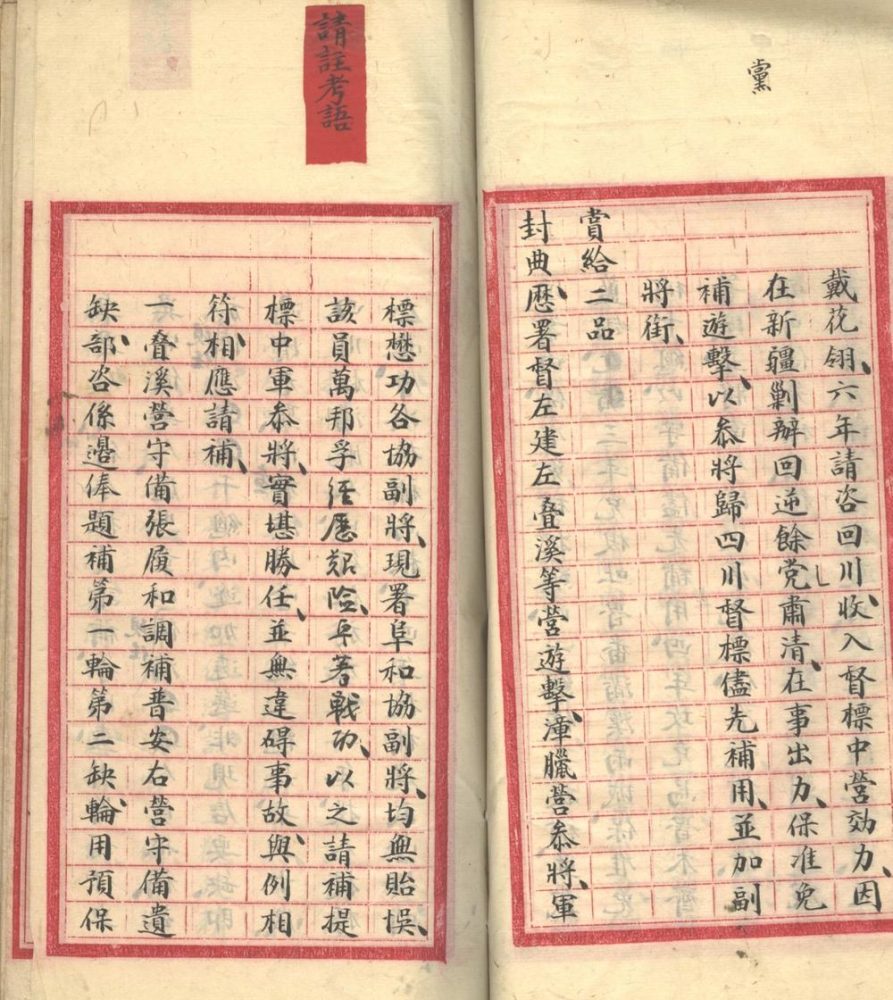 黨
戴花翎、六年請咨回川、收入督標中營効力、因
在新疆剿辦回逆餘党肅清、在事出力、保准免
補遊擊、以叅將歸四川督標儘先補用、並加副
將銜、
賞給二品
封典歷署督左建左叠溪等營遊擊、漳臘營叅將、軍
請註考語
標懋功各協副將、現署阜和協副將、均無貽悞、
該員萬邦孚經歷艱險、卓著戰功、以之請補提
標中軍叅將、實堪勝任、並無違碍事故、與例相
符、相應請補、
一叠溪營守備張履和調補普安右營守備遺
缺、部咨係邊俸題補第一輪第二缺、輪用預保